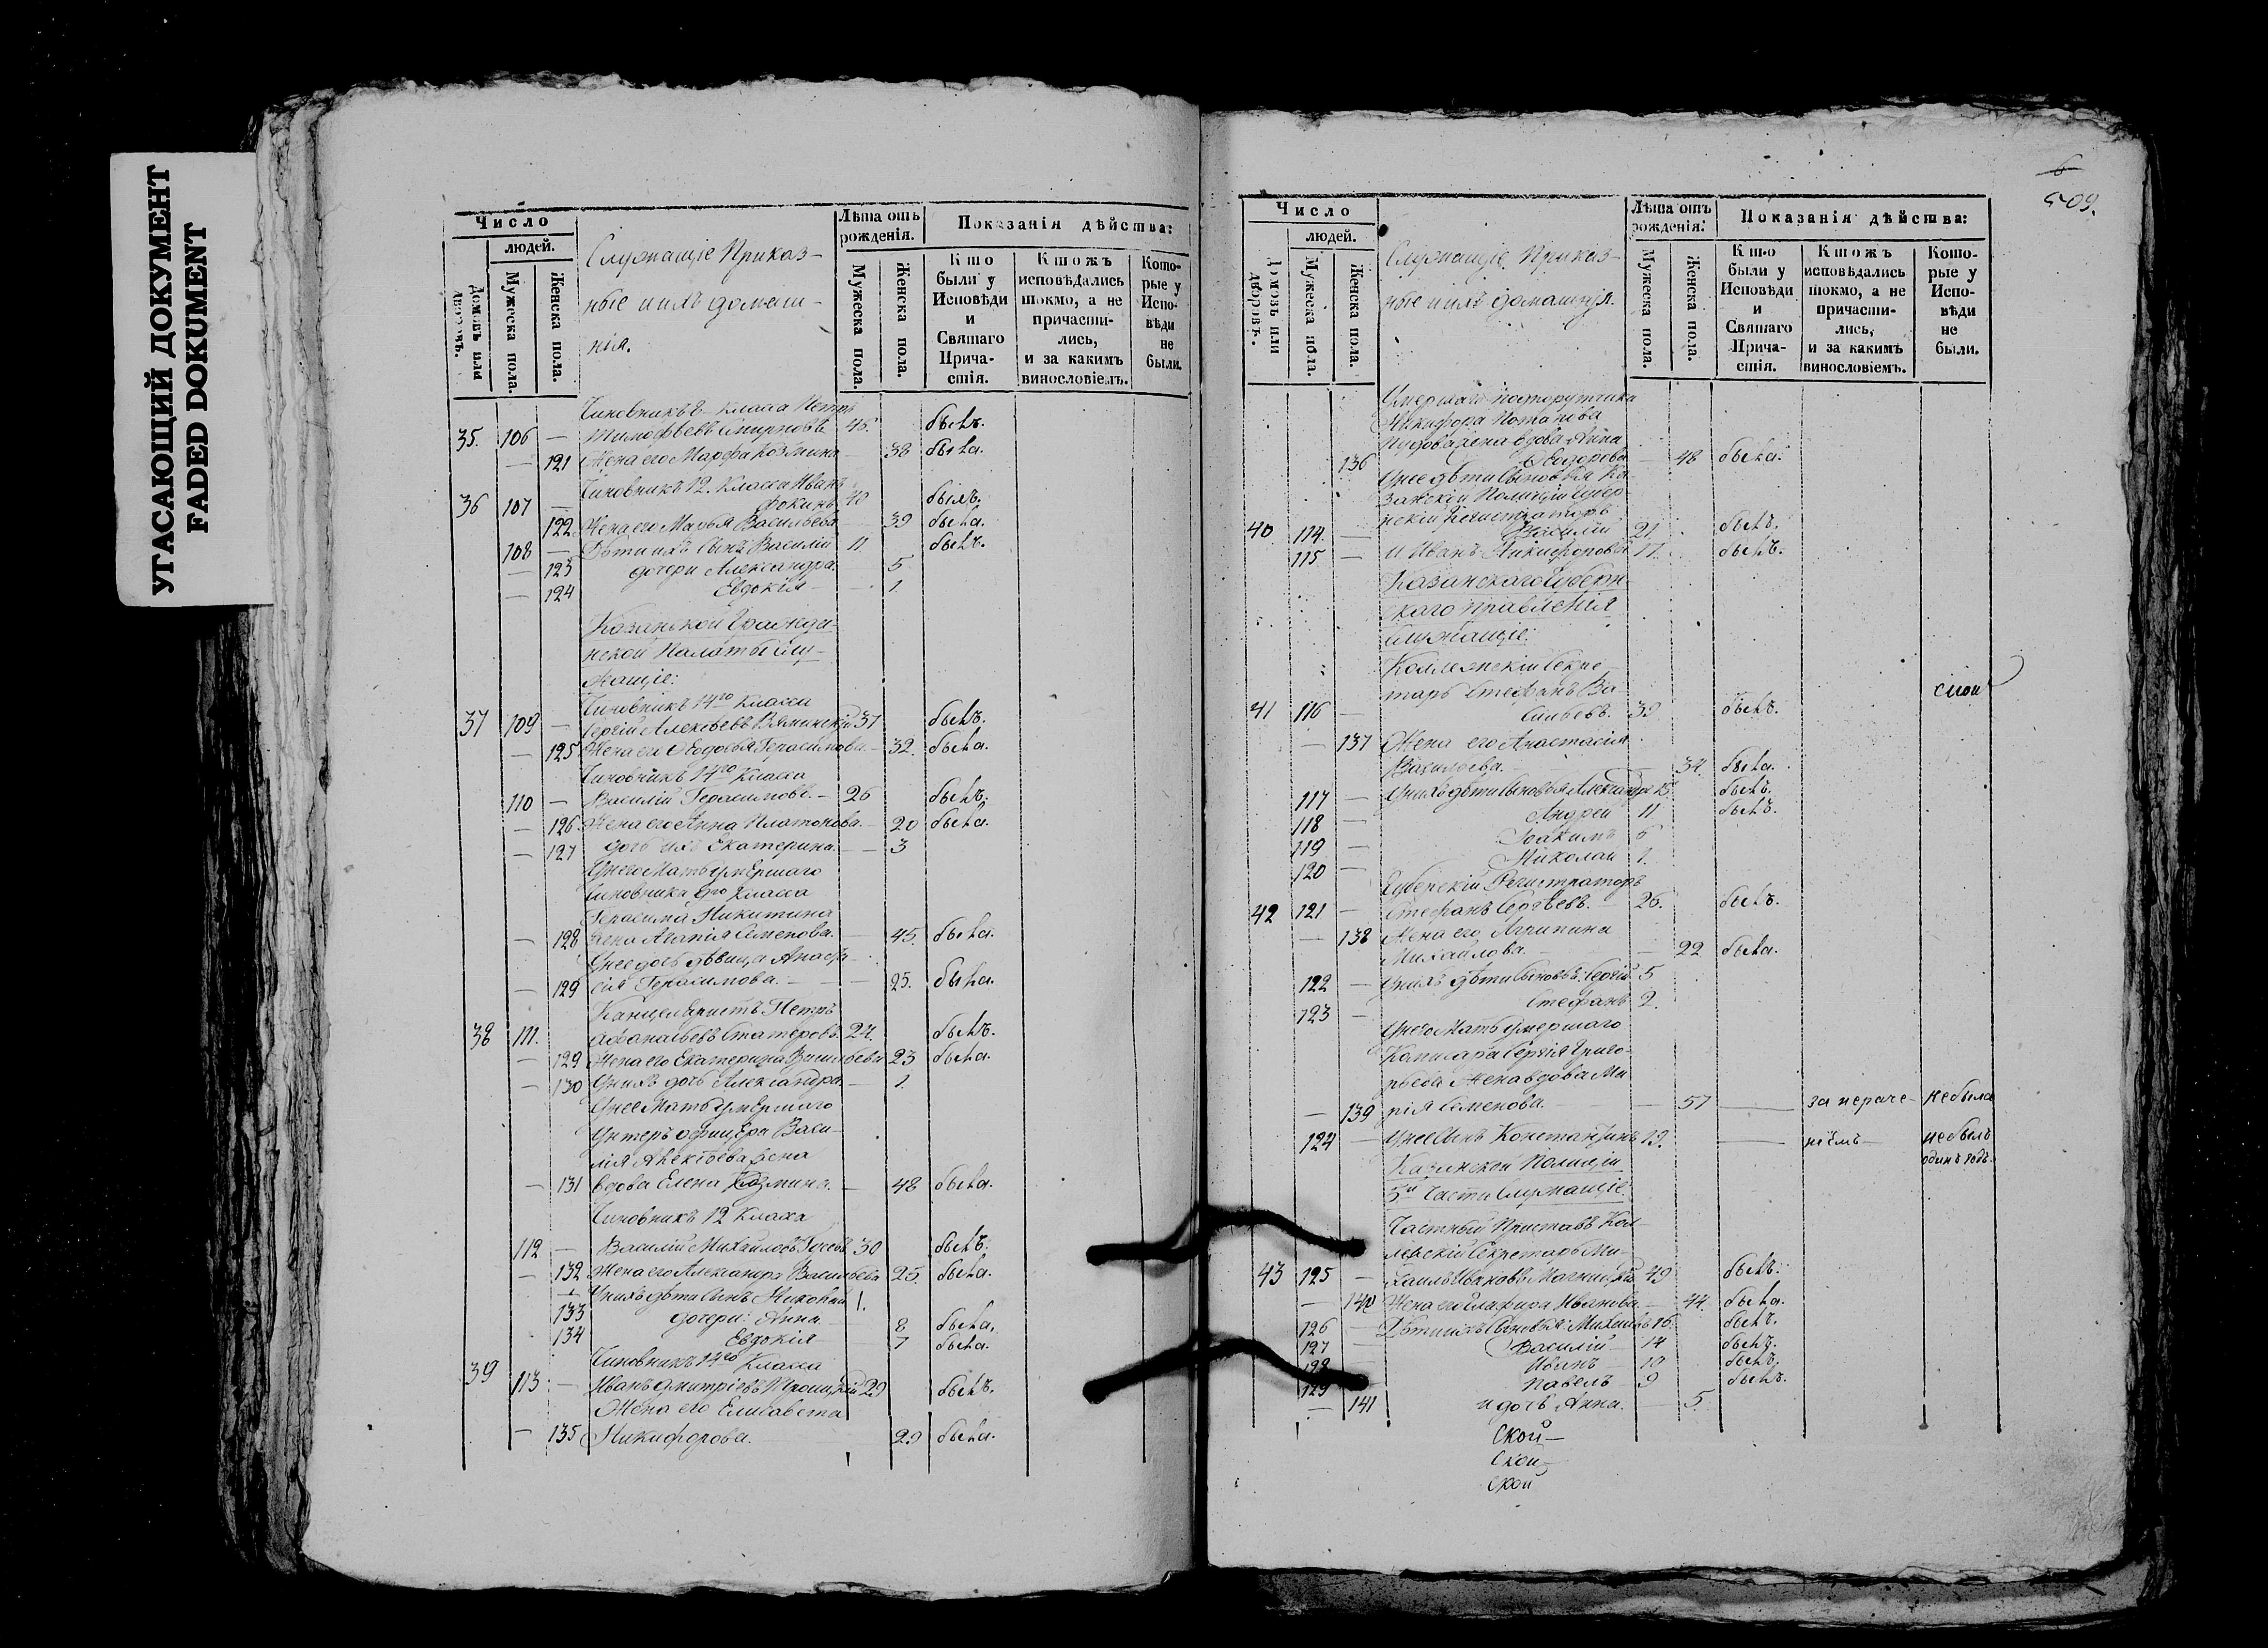 УГАСАЮЩИЙ ДОКУМЕНТ
FADED DOKUMENT
Число
людей.
Домовъ или дворовъ.
Мужеска пола.
Женска пола.
Служащіе Приказ-
ные и ихъ домаш-
нія.
Лѣта отъ рожденія.
Мужеска пола.
Женска пола.
Показанія дѣйства:
Кто были у Исповѣди и Святаго Причастія.
Ктожъ исповѣдались токмо, а не причастились, и за какимъ винословіемъ.
Которые у Исповѣди не были.
Чиновникъ 8 класса Петръ
35. 106 — Тимофѣевъ Смирновъ 45. былъ.
— 121 Жена его Марфа Козмина — 38 была.
Чиновникъ 12. Класса Иванъ
36 107 — Фокинъ 40 былъ.
122 Жена его Марья Васильева — 39 была.
108 — Дѣти ихъ Сынъ Василій 11 былъ.
— 123 дочери Александра 5
— 124 Евдокія — — 1.
Казанской Гражда-
нской Палаты слу-
жащіе:
Чиновникъ 14го Класса
37 109 — Сергій Алексѣевъ 37 былъ.
— 125 Жена его Ѳедосья Герасимова. — 32. была.
Чиновникъ 14го Класса
110 — Василій Герасимовъ. — 26 былъ.
— 126. Жена его Анна Платонова. — 20 была.
— 127 дочь ихъ Екатерина. — 3
У него Мать умершаго
Чиновника 9го Класса
Герасима Никитина
— 128 жена Агапія Семенова. — 45. была.
У нее дочь дѣвица Анаста-
— 129 сія Герасимова. — — 25. была.
Канцеляристъ Петръ
38 111. Афанасьевъ Статеровъ. 24. былъ.
— 129 Жена его Екатерина Васильева 23 была.
— 130 У нихъ дочь Александра. — 1.
У нее Мать умершаго
Унтеръ офицера Васи-
лія Алексѣева жена
— 131 вдова Елена Козмина. — 48 была.
Чиновникъ 12 Класса
112 — Василій Михайловъ 30 былъ.
— 132 Жена его Александра Васильева 25. была.
— У нихъ дѣти Сынъ Николай 1.
133 дочери: Анна 8 была,
134 Евдокія 7 была.
Чиновникъ 14го Класса
39 113 — Иванъ Дмитріевъ 29 былъ.
Жена его Елисавета
— 135 Никифорова. 29 была.
6
509.
Число
людей.
Домовъ или дворовъ.
Мужеска пола.
Женска пола.
Служащіе Приказ-
ные и ихъ домашнія.
Лѣта отъ рожденія.
Мужеска пола.
Женска пола.
Показанія дѣйства:
Кто были у Исповѣди и Святаго Причастія.
Ктожъ исповѣдались токмо, а не причастились, и за какимъ винословіемъ.
Которые у Исповѣди не были.
Умершаго поторутчика
Никифора Потапова
жена вдова Анна
136 Ѳедорова — 48 была.
У нее дѣти Сыновья Ка-
занскій Полиціи Губер-
нскій Регистраторъ
40 114 — Василій 21. былъ.
115 — и Иванъ Никифоровы 17. былъ.
Казанскаго Губерн-
скаго правленія
служащіе:
Коллежскій Секре-
тарь Стефанъ Ва-
41 116 — сильевъ. 39 былъ.
— 137 Жена его Анастасія
Васильева. — 34. была.
117 — У нихъ дѣти Сыновья Александръ 15. былъ.
118 — Андрей 11 былъ.
119 — Іоакимъ 6
120 — Николай 1.
Губернскій Регистраторъ
42 121 — Стефанъ Сергѣевъ. — 26. былъ.
— 138 Жена его Агрипина
Михайлова. — 22 была.
122 — У нихъ дѣти Сыновья: Сергій 5
123 — Стефанъ 2.
У него Мать умершаго
Сергія Григо-
рьева жена вдова Ма-
— 139 рія Семенова. — — 57 — за нераче- небыла
124 — У нее Сынъ Константинъ 19. — ніемъ — небылъ
одинъ годъ.
Казанской Полиціи
5й Части Служащіе.
Частный Приставъ Кол-
лежскій Секретарь Ми-
43 125 — хаилъ Ивановъ 49 былъ.
— 140 Жена его Глафира Иванова. — 44. была.
126 — Дѣти ихъ Сыновья: Михаилъ 16. былъ.
127 — Василій — 14 былъ.
128 — Иванъ — 10 былъ.
129 Павелъ 9 былъ.
— 141 и дочь Анна. — 5.
Ской —
Ской —
Ской